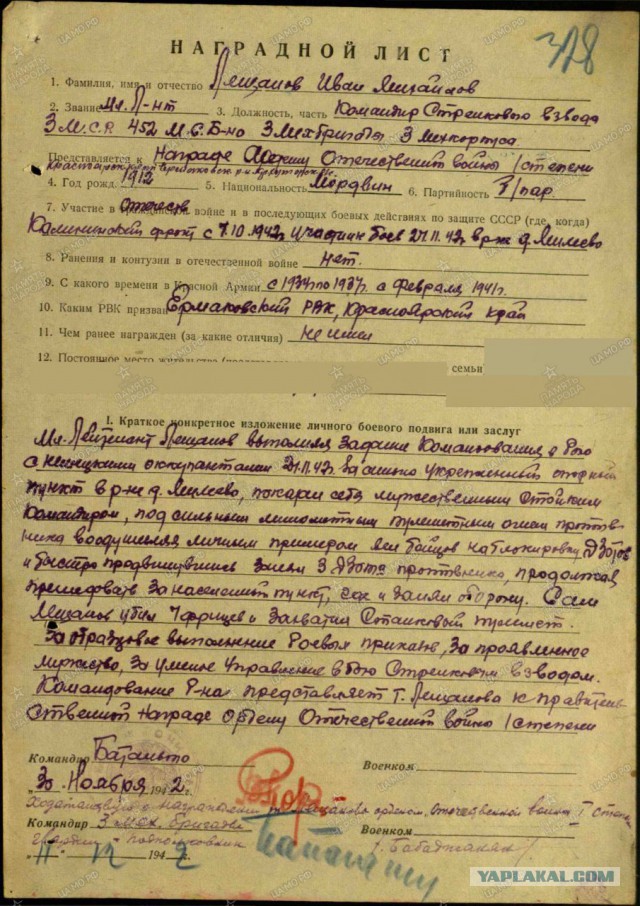 328
НАГРАДНОЙ ЛИСТ
1. Фамилия, имя и отчество Лещанов Иван Михайлов
2. Звание Мл. Л-нт 3. Должность, часть Командир Стрелкового взвода
3 М.С.Р. 452 М.С.Б-на 3 Мехбригады 3 Мехкорпуса
Представляется к Награде Ордену Отечественной войны I степени
4. Год рожд. 1912 5. Национальность Мордвин 6. Партийность б/пар.
7. Участие в Отечеств войне и в последующих боевых действиях по защите СССР (где, когда)
Калининский фронт с 7.10.1942г Участник боев 27.11.42г в р-не д. Яилеево
8. Ранения и контузии в отечественной войне нет.
9. С какого времени в Красной Армии с 1934 по 1937г. с февраля 1941г.
10. Каким РВК призван Ермаковский РВК, Красноярский край
11. Чем ранее награжден (за какие отличия) не имел
12. Постоянное место жительства семьи
I. Краткое конкретное изложение личного боевого подвига или заслуг
Мл. Лейтенант Лещанов выполняя задание Командования в бою
с немецкими оккупантами 27.11.42г. за сильно укрепленный опорный
пункт в р-не д. Яилеево, показал себя мужественным стойким
командиром, под сильным минометным пулеметным огнем против-
ника воодушевляя личным примером вел бойцов на блокировку Дзотов
и быстро продвинувшись занял 3 Дзота противника, продолжая
преследовать за населенный пункт, где и занял оборону. Сам
Лещанов убил 7 фрицев и захватил станковый пулемет.
За образцовое выполнение боевых приказов, за проявленное
мужество, за умелое управление в бою стрелковым взводом.
Командование б-на представляет т. Лещанова к правитель-
ственной награде ордену Отечественной войны I степени
Командир Батальона Военком
30 Ноября 1942 г.
Ходатайствую о награждении Лещанова орденом Отечественной войны I степ
Командир 3 мех. бригады Военком
гвардии - подполковник / Бабаджанян /
11. 12 1942
ЦАМО.РФ
ПАМЯТЬ НАРОДА
YAPLAKAL.COM